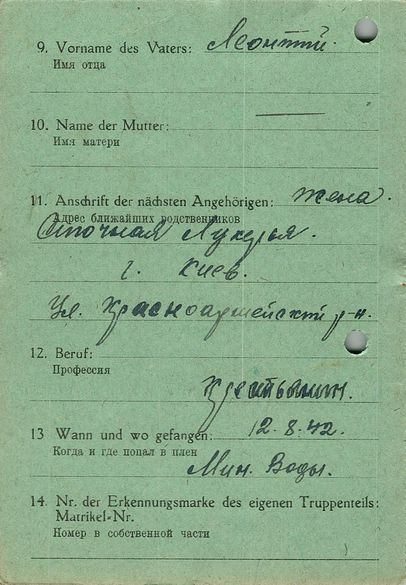 9. Vorname des Vaters: Леонтий.
Имя отца
10. Name der Mutter: —
Имя матери
11. Anschrift der nächsten Angehörigen: жена.
Адрес ближайших родственников
Лукерья.
г. Киев.
Ул. Красноармейский р-н.
12. Beruf:
Профессия
Крестьянин.
13 Wann und wo gefangen: 12.8.42.
Когда и где попал в плен
Мин. Воды.
14. Nr. der Erkennungsmarke des eigenen Truppenteils:
Matrikel-Nr.
Номер в собственной части